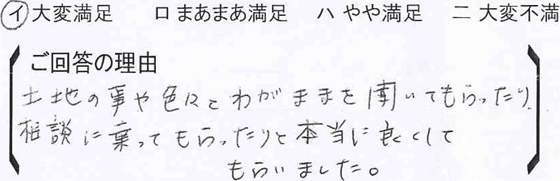 イ 大変満足 ロ まあまあ満足 ハ やや満足 ニ 大変不満
ご回答の理由
土地の事や色々とわがままを聞いてもらったり
相談に乗ってもらったりと本当に良くして
もらいました。